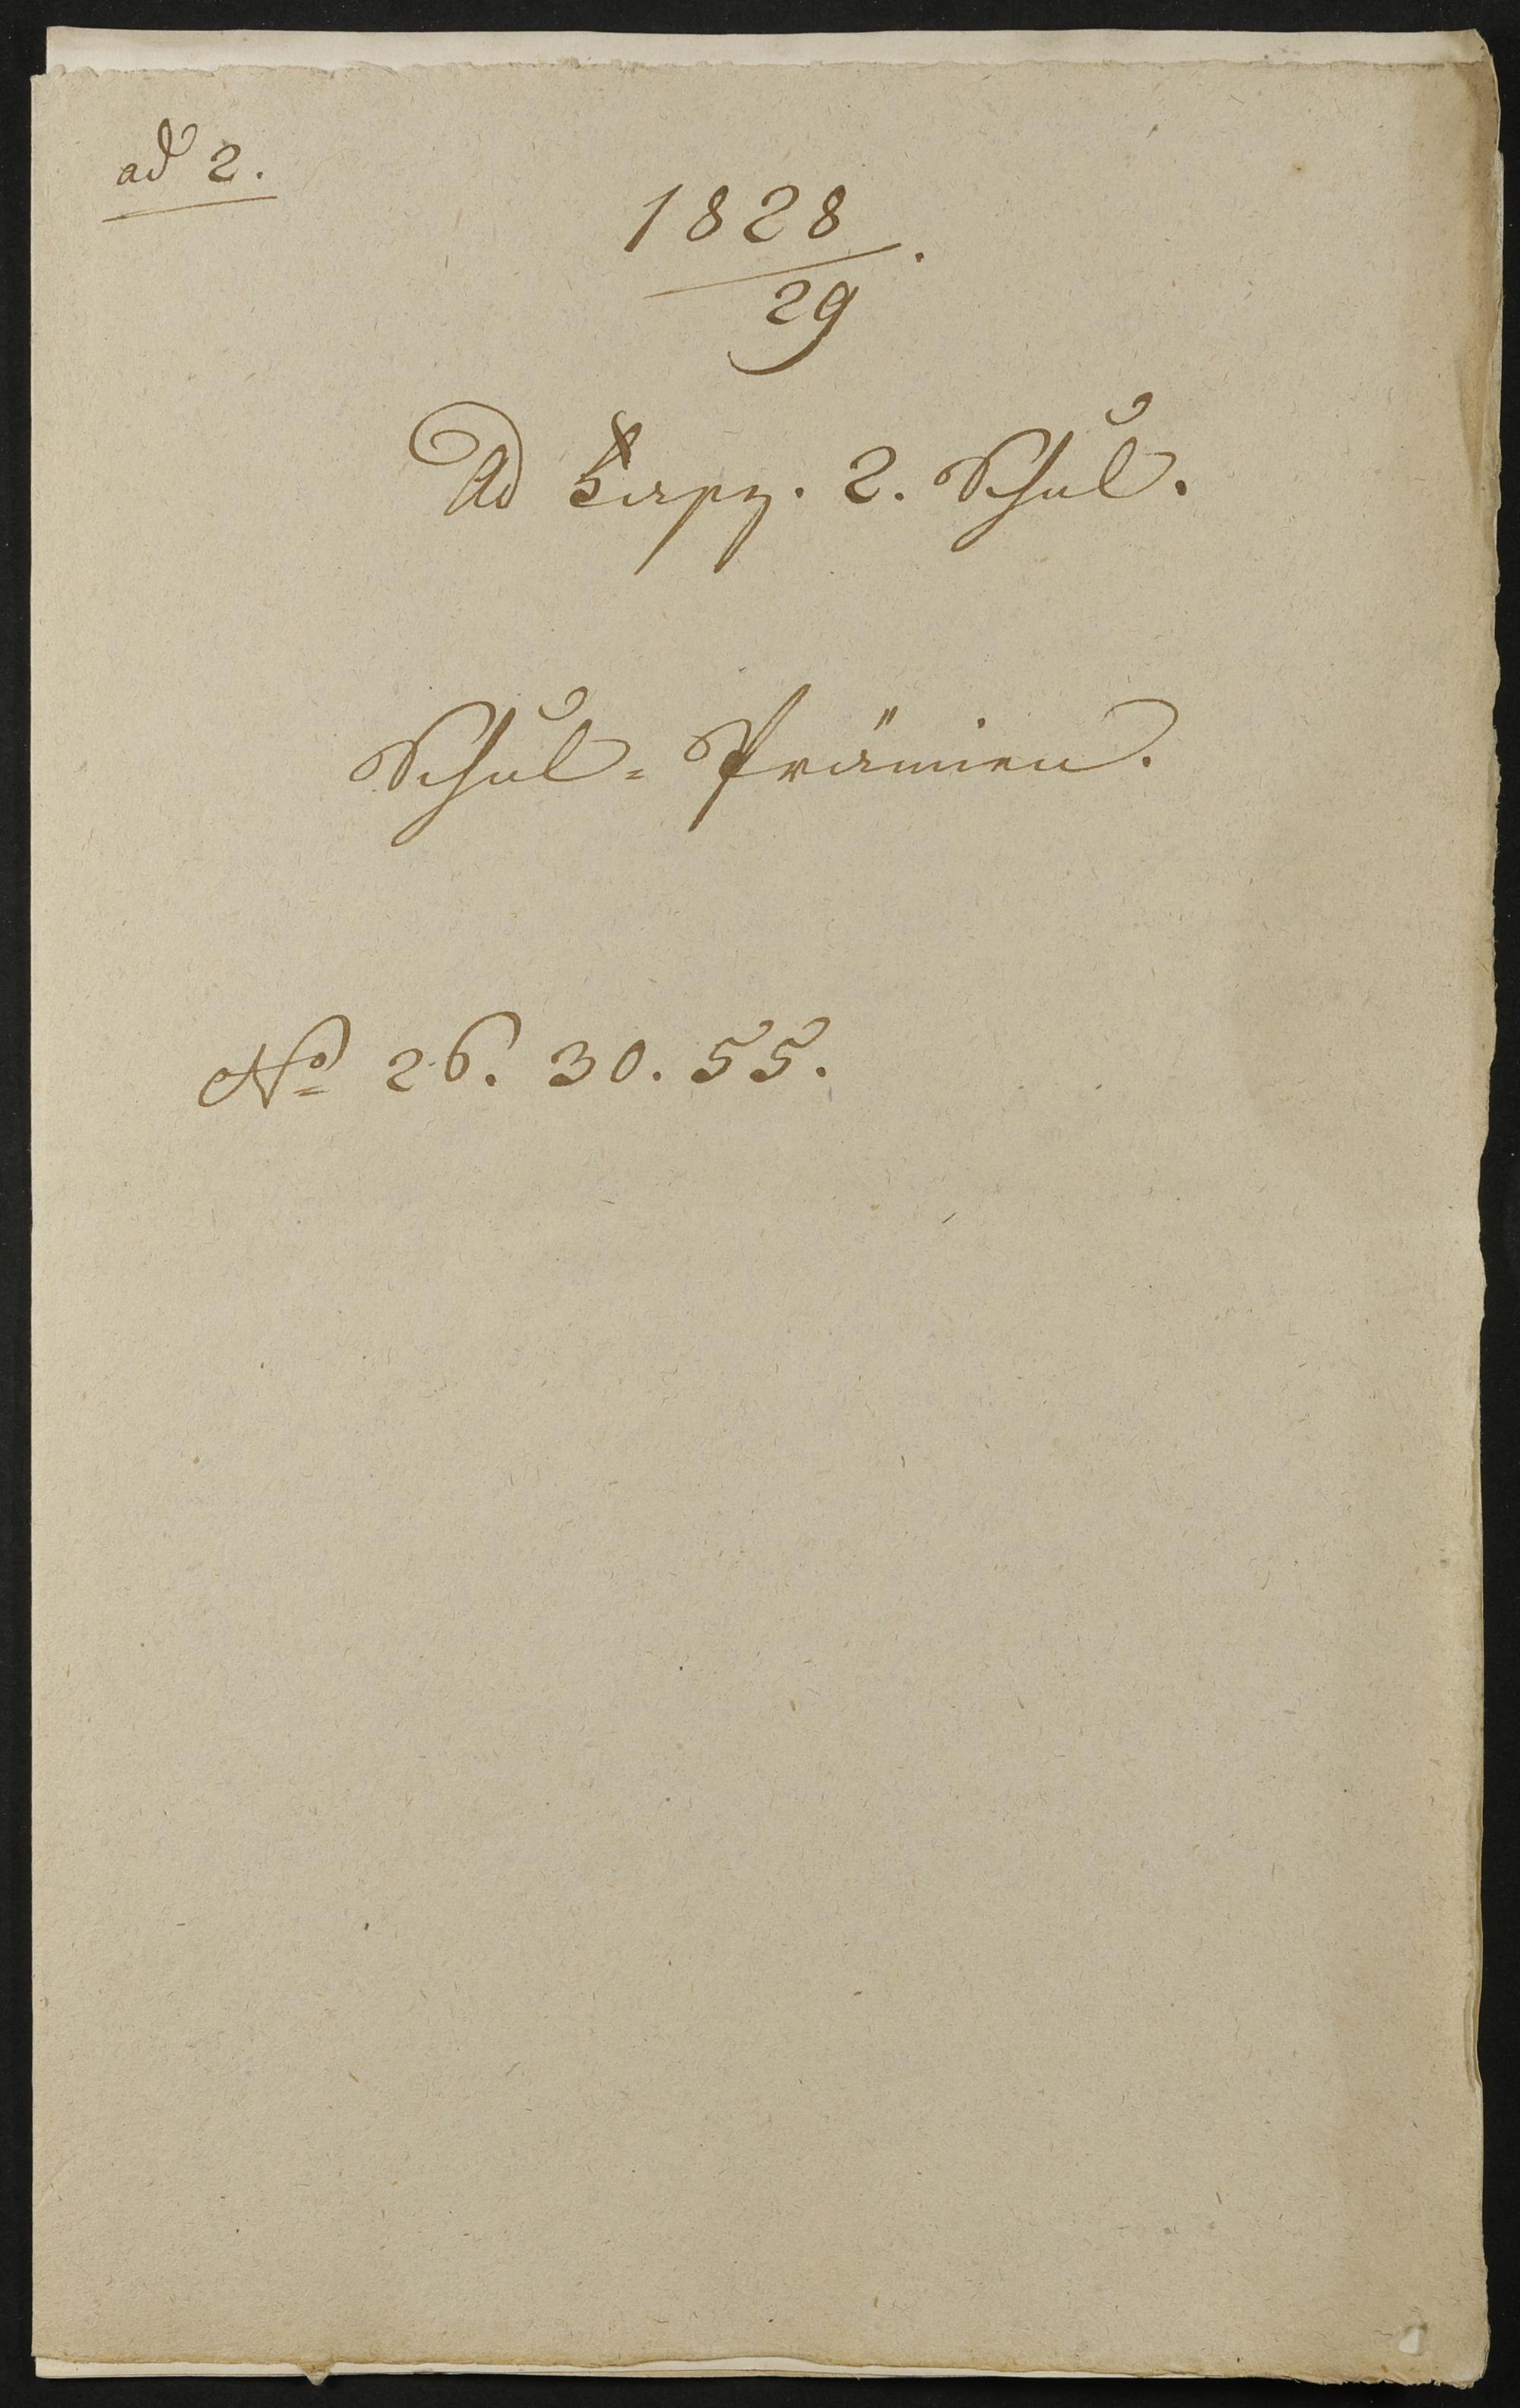 ad 2.
1828
29.
Ad Fasz. 2. Schul.
Schul-Prämien.
No 26. 30. 55.